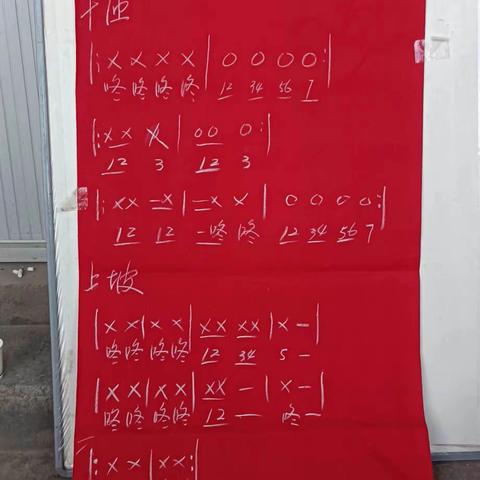 |: X X X X | 0 0 0 0 :|
咚 咚 咚 咚 12 34 56 7
|: X X X | 0 0 0 :|
12 3 12 3
|: X X – X | – X X | 0 0 0 0 :|
12 12 – 咚 咚 12 34 56 7
上坡
| X X | X X | X X X X | X – |
咚 咚 咚 咚 12 34 5 –
| X X | X X | X X – | X – |
咚 咚 咚 咚 12 – 咚 –
|: X X | X X :|